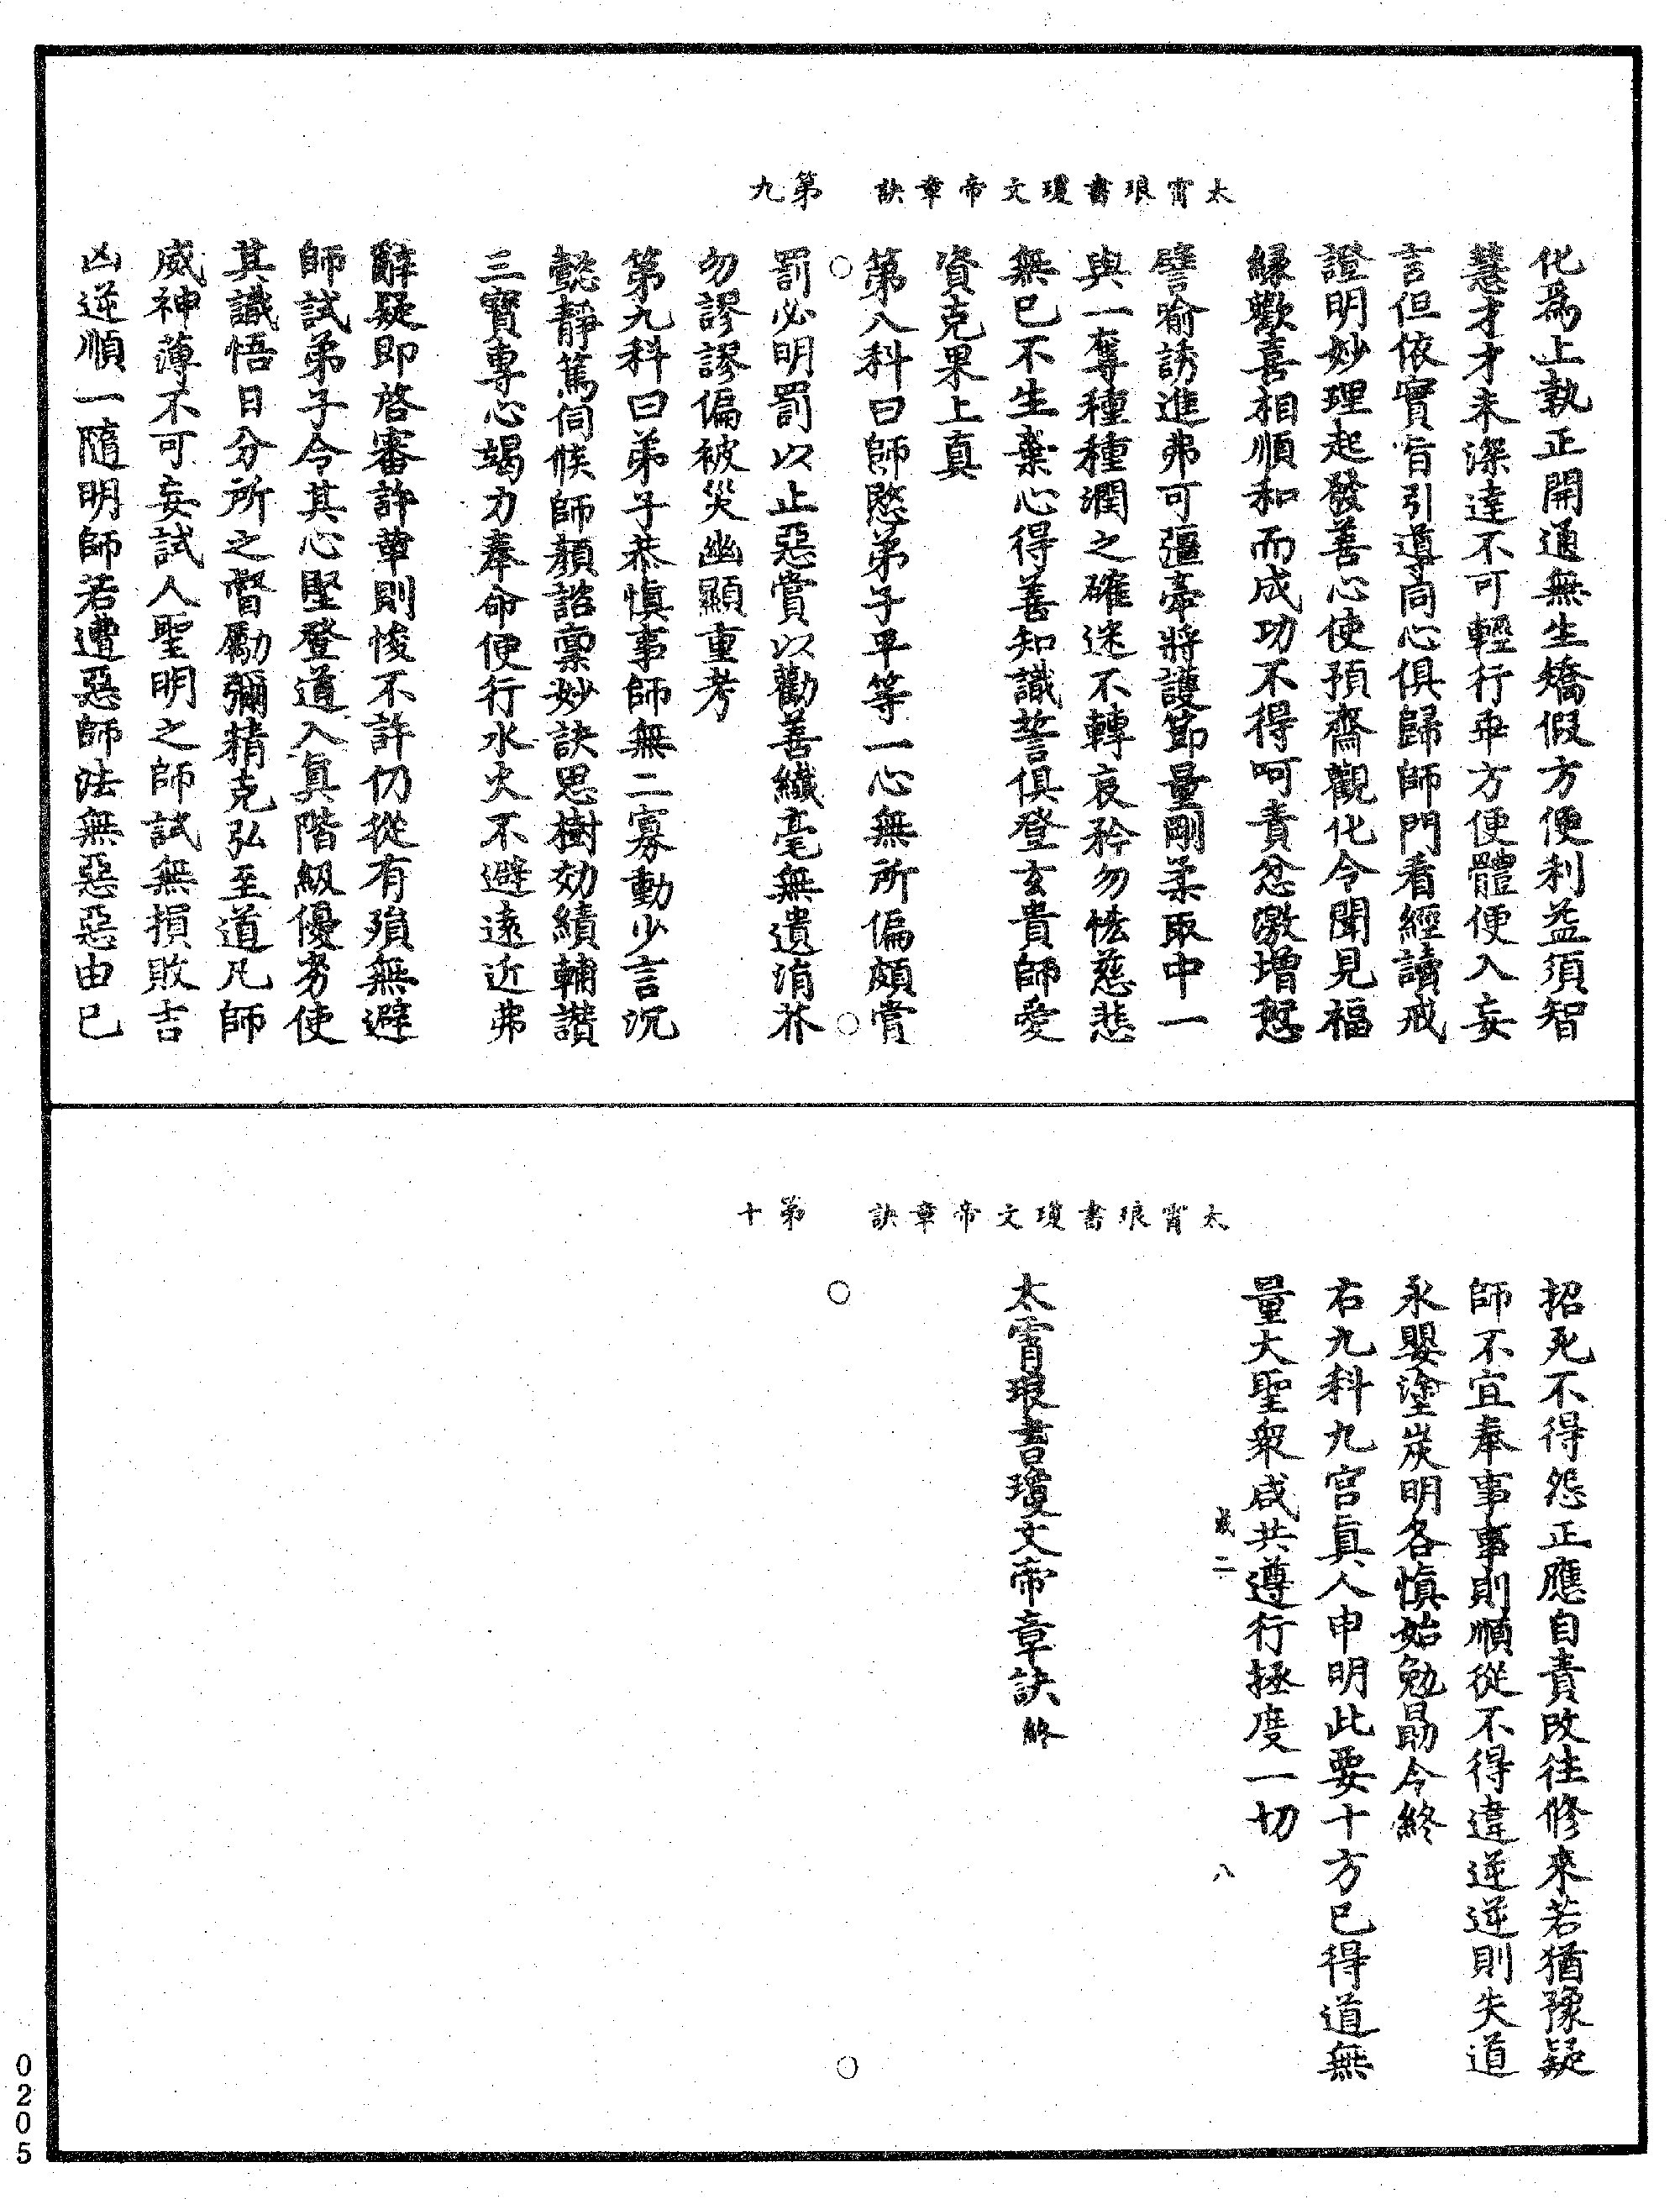 太霄琅書瓊文帝章訣　第九
化爲上執正開通無生矯假方便利益須智
慧才才未深達不可輕行乖方便體便入妄
言但依實旨引導同心俱歸師門看經讀戒
證明妙理起發善心使預齋觀化令聞見福
緣歡喜相順和而成功不得呵責忿激增愆
譬喻誘進弗可彊牽將護節量剛柔取中一
與一奪種種潤之確迷不轉哀矜勿恡慈悲
無已不生棄心得善知識誓俱登玄貴師愛
資克果上真
第八科曰師愍弟子平等一心無所偏頗賞
罰必明罰以止惡賞以勸善纖毫無遺涓芥
勿謬謬偏被災幽顯重考
第九科曰弟子恭慎事師無二寡動少言沉
懿靜篤伺候師顏諮稟妙訣思樹効績輔讚
三寶專心竭力奉命便行水火不避遠近弗
辭疑即啓審許華則悛不許仍從有殞無避
師試弟子令其心堅登道入真階級優劣使
其識悟日分所之督勵彌精克弘至道凡師
威神薄不可妄試人聖明之師試無損敗吉
凶逆順一隨明師若遭惡師法無惡惡由已
太霄琅書瓊文帝章訣　第十
招死不得怨正應自責改往修來若猶豫疑
師不宜奉事事則順從不得違逆逆則失道
永嬰塗炭明各慎始勉勗令終
右九科九宫真人申明此要十方已得道無
量大聖衆咸共遵行拯度一切
八
太霄琅書瓊文帝章訣終
0205